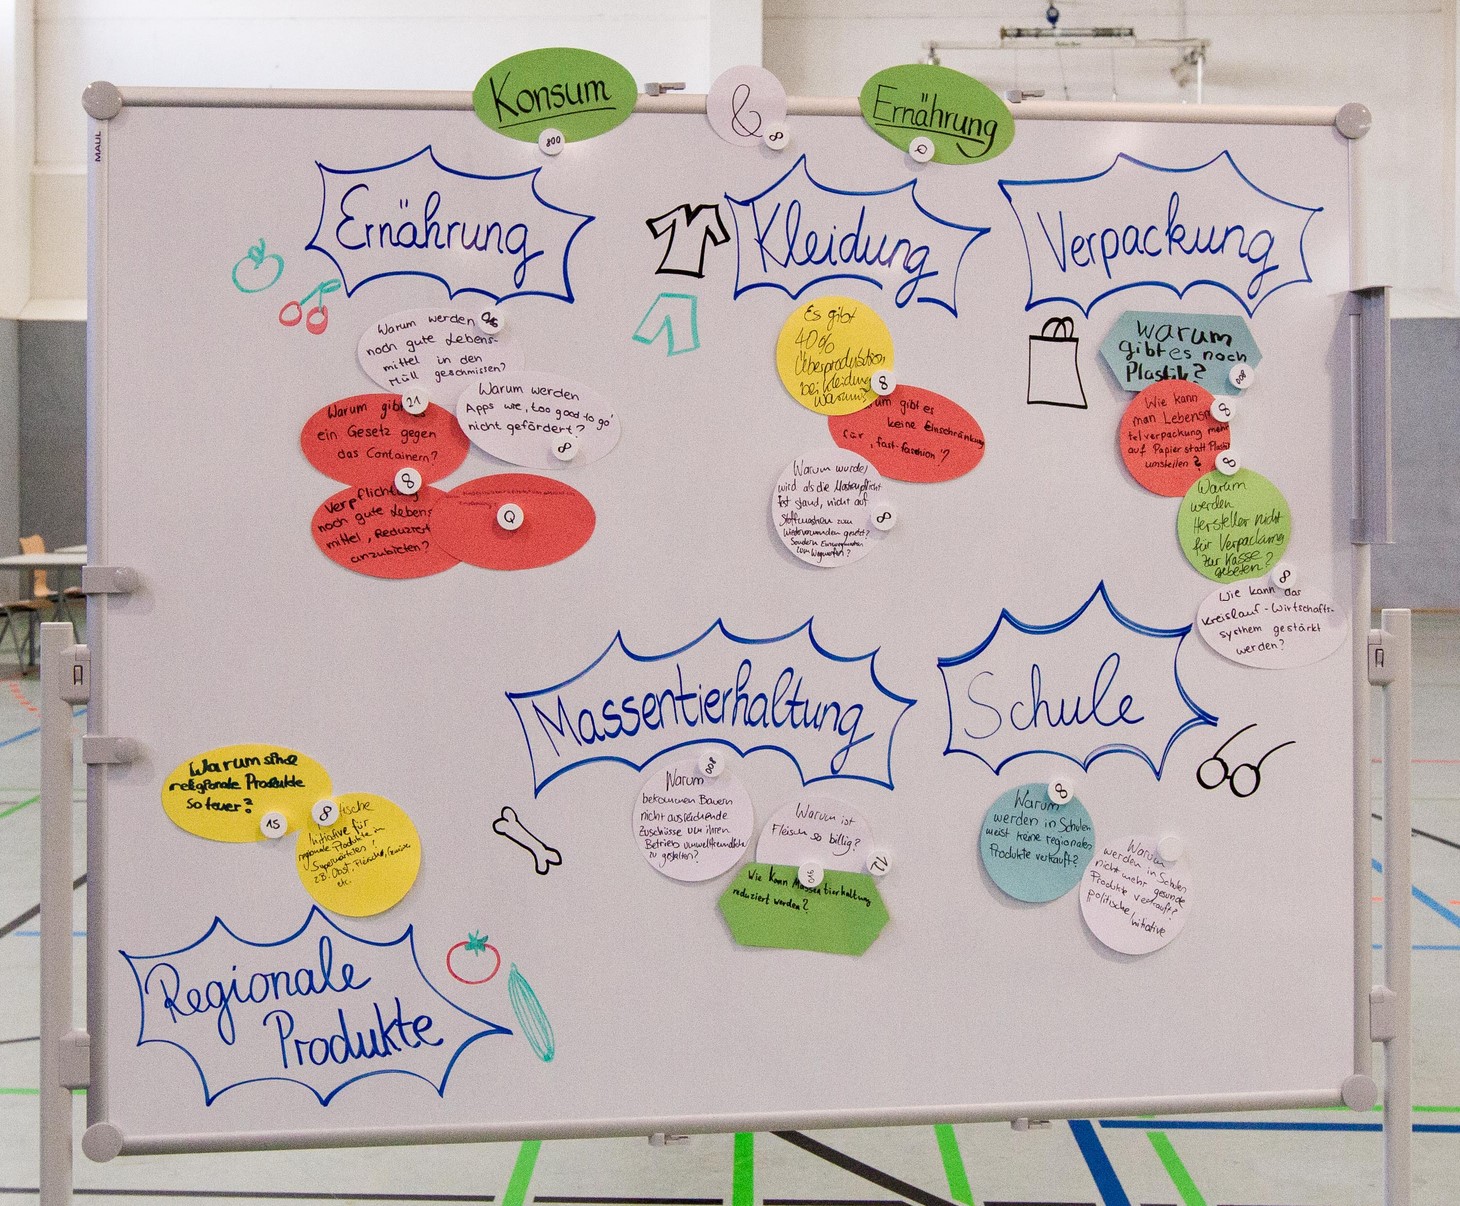 Konsum
&
Ernährung
MAUL
Ernährung
Warum werden
noch gute Lebens-
mittel in den
Müll geschmissen?
Warum werden
Apps wie, too good to go'
nicht gefördert?
21
Warum gibt
ein Gesetz gegen
das Containern?
Verpflichtung
noch gute Lebens
mittel, Reduziert
anzubieten?
Kleidung
Es gibt
40%
Überproduktion
bei Kleidung
Warum?
um gibt es
keine Einschränkung
für „fast-fashion"?
Warum wurde/
wird als die Maskenpflicht
ist stand, nicht auf
Stoffmasken zum
Wiederverwenden gesetzt?
Sondern Einwegmasken
zum Wegwerfen?
Verpackung
Warum
gibt es noch
Plastik?
Wie kann
man Lebensm
telverpackung mehr
auf Papier statt Plastik
umstellen?
Warum
werden
Hersteller nicht
für Verpackung
zur Kasse
gebeten?
Wie kann das
Kreislauf-Wirtschafts-
systhem gestärkt
werden?
Massentierhaltung
Warum
bekommen Bauern
nicht ausreichende
Zuschüsse um ihren
Betrieb umweltfreundlicher
zu gestalten?
Warum ist
Fleisch so billig?
12
Wie kann Massentierhaltung
reduziert werden?
Schule
Warum
werden in Schulen
meist keine regionalen
Produkte verkauft?
Warum
werden in Schulen
nicht mehr gesunde
Produkte verkauft?
politische Initiative
Warum sind
religionale Produkte
so teuer?
15
tische
Initiative für
regionale Produkte in
Supermärkten!
z.B. Obst, Fleisch, Gemüse,
etc.
Regionale
Produkte